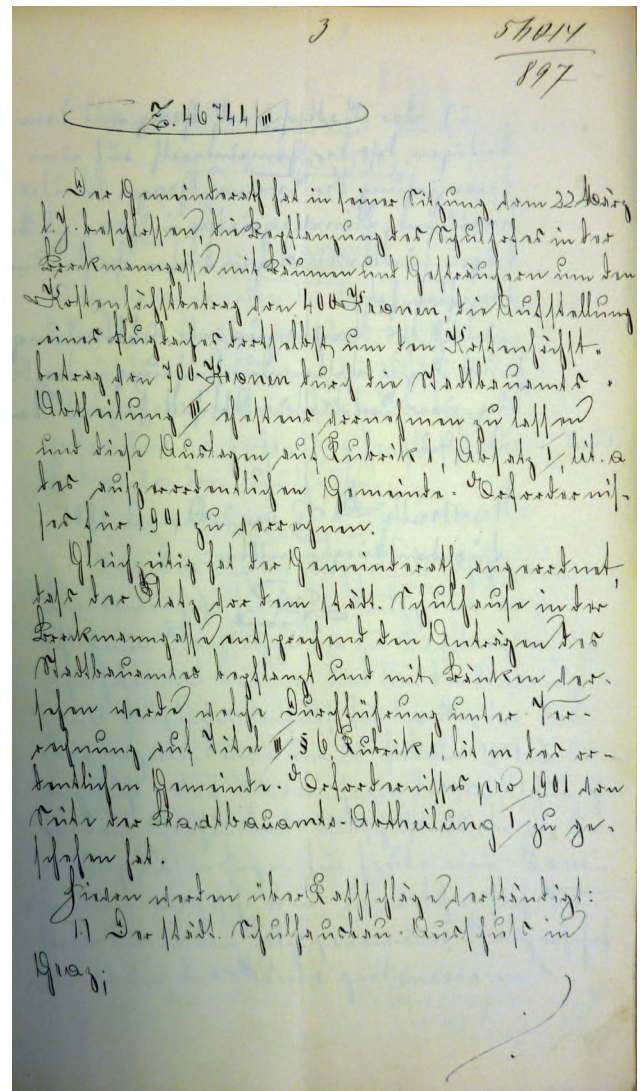 3
54014
897
Z. 46744/III
Der Gemeinderath hat in seiner Sitzung vom 22 März
l. J. beschlossen, die Bepflanzung des Schulhofes in der
Brockmanngasse mit Bäumen und Gesträuchern um den
Kostenhöchstbetrag von 400 Kronen, die Aufstellung
eines Flugdaches dortselbst um den Kostenhöchst-
betrag von 700 Kronen durch die Stadtbauamts-
Abtheilung III ehestens vornehmen zu lassen
und diese Auslagen auf Rubrik 1, Absatz 1, lit. a
des auszerordentlichen Gemeinde-Erfordernis-
ses für 1901 zu verrechnen.
Gleichzeitig hat der Gemeinderath angeordnet,
dass der Platz vor dem städt. Schulhause in der
Brockmanngasse entsprechend den Anträgen des
Stadtbauamtes bepflanzt und mit Bänken ver-
sehen werde, welche Durchführung unter Ver-
rechnung auf Titel III, § 6, Rubrik 1, lit m des or-
dentlichen Gemeinde-Erfordernisses pro 1901 von
Seite der Stadtbauamts-Abtheilung I zu ge-
schehen hat.
Hievon werden über Rathschläge verständigt:
1.) Der städt. Schulhausbau-Ausschuss in
Graz;